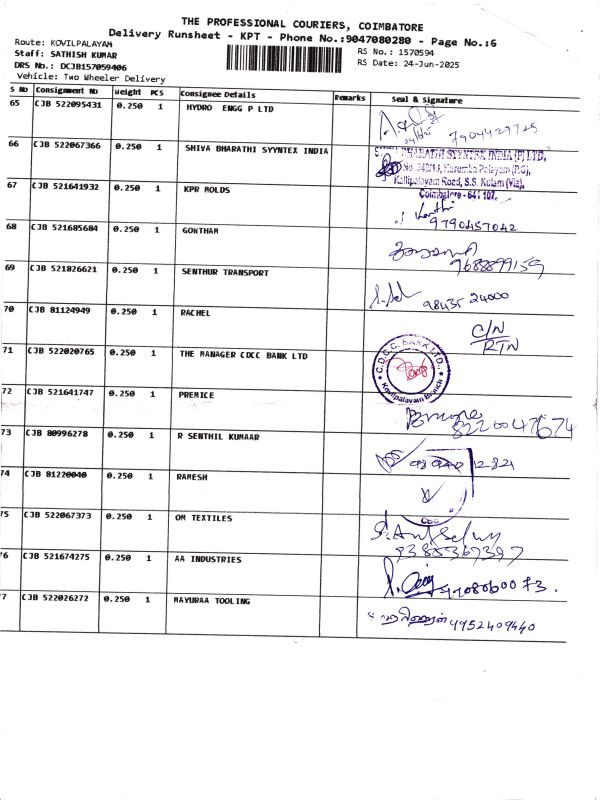 THE PROFESSIONAL COURIERS, COIMBATORE
Delivery Runsheet - KPT - Phone No.:9047080280 - Page No.:6
Route: KOVILPALAYAM
Staff: SATHISH KUMAR
DRS No.: DCJB157059406
Vehicle: Two Wheeler Delivery
RS No.: 1570594
RS Date: 24-Jun-2025
S No Consignment No Weight PCS Consignee Details Remarks Seal & Signature
65 CJB 522095431 0.250 1 HYDRO ENGG P LTD
7904429725
66 CJB 522067366 0.250 1 SHIVA BHARATHI SYYNTEX INDIA
BHARATHI SYYNTEX INDIA (P) LTD,
Kurumba Palayam (P.O),
Kallipalayam Road, S.S. Kulam (Via),
Coimbatore - 641 107.
67 CJB 521641932 0.250 1 KPR MOLDS
9790457042
68 CJB 521685684 0.250 1 GONTHAM
9688899159
69 CJB 521826621 0.250 1 SENTHUR TRANSPORT
98435 24000
70 CJB 81124949 0.250 1 RACHEL
C/N
RTN
71 CJB 522020765 0.250 1 THE MANAGER CDCC BANK LTD
C.D.C.C. BANK LTD.,
Kovilpalayam Branch
72 CJB 521641747 0.250 1 PREMICE
8220047674
73 CJB 80996278 0.250 1 R SENTHIL KUMAAR
74 CJB 81220040 0.250 1 RAMESH
75 CJB 522067373 0.250 1 OM TEXTILES
9385367397
76 CJB 521674275 0.250 1 AA INDUSTRIES
77 CJB 522026272 0.250 1 MAYURAA TOOLING
9952409440